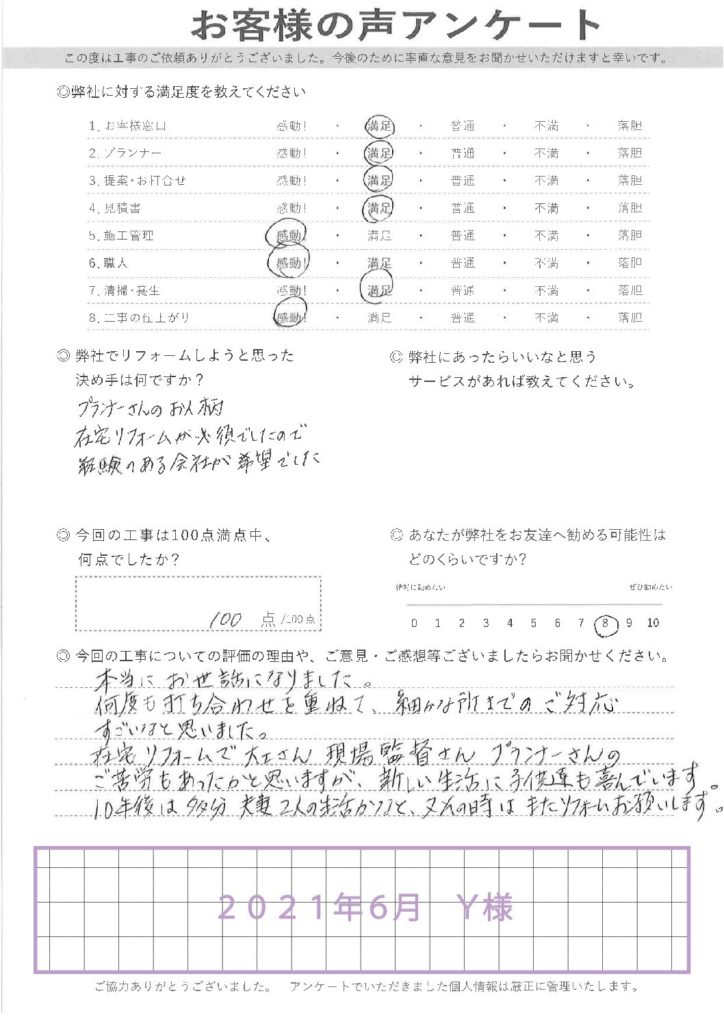 お客様の声アンケート
この度は工事のご依頼ありがとうございました。今後のために率直な意見をお聞かせいただけますと幸いです。
◎弊社に対する満足度を教えてください
1. お客様窓口 感動! ・ 満足 ・ 普通 ・ 不満 ・ 落胆
2. プランナー 感動! ・ 満足 ・ 普通 ・ 不満 ・ 落胆
3. 提案・お打合せ 感動! ・ 満足 ・ 普通 ・ 不満 ・ 落胆
4. 見積書 感動! ・ 満足 ・ 普通 ・ 不満 ・ 落胆
5. 施工管理 感動! ・ 満足 ・ 普通 ・ 不満 ・ 落胆
6. 職人 感動! ・ 満足 ・ 普通 ・ 不満 ・ 落胆
7. 清掃・養生 感動! ・ 満足 ・ 普通 ・ 不満 ・ 落胆
8. 工事の仕上がり 感動! ・ 満足 ・ 普通 ・ 不満 ・ 落胆
◎ 弊社でリフォームしようと思った
決め手は何ですか？
プランナーさんのお人柄
在宅リフォームが必須でしたので
経験のある会社が希望でした
◎ 弊社にあったらいいなと思う
サービスがあれば教えてください。
◎ 今回の工事は100点満点中、
何点でしたか？
100 点 /100点
◎ あなたが弊社をお友達へ勧める可能性は
どのくらいですか？
絶対に勧めたい ぜひ勧めたい
0 1 2 3 4 5 6 7 8 9 10
◎ 今回の工事についての評価の理由や、ご意見・ご感想等ございましたらお聞かせください。
本当にお世話になりました。
何度も打ち合わせを重ねて、細かな所までのご対応
すごいなと思いました。
在宅リフォームで大工さん 現場監督さん プランナーさんの
ご苦労もあったかと思いますが、新しい生活に子供達も喜んでいます。
10年後は多分 夫妻2人の生活かなと、又その時はまたリフォームお願いします。
2021年6月 Y様
ご協力ありがとうございました。 アンケートでいただきました個人情報は厳正に管理いたします。